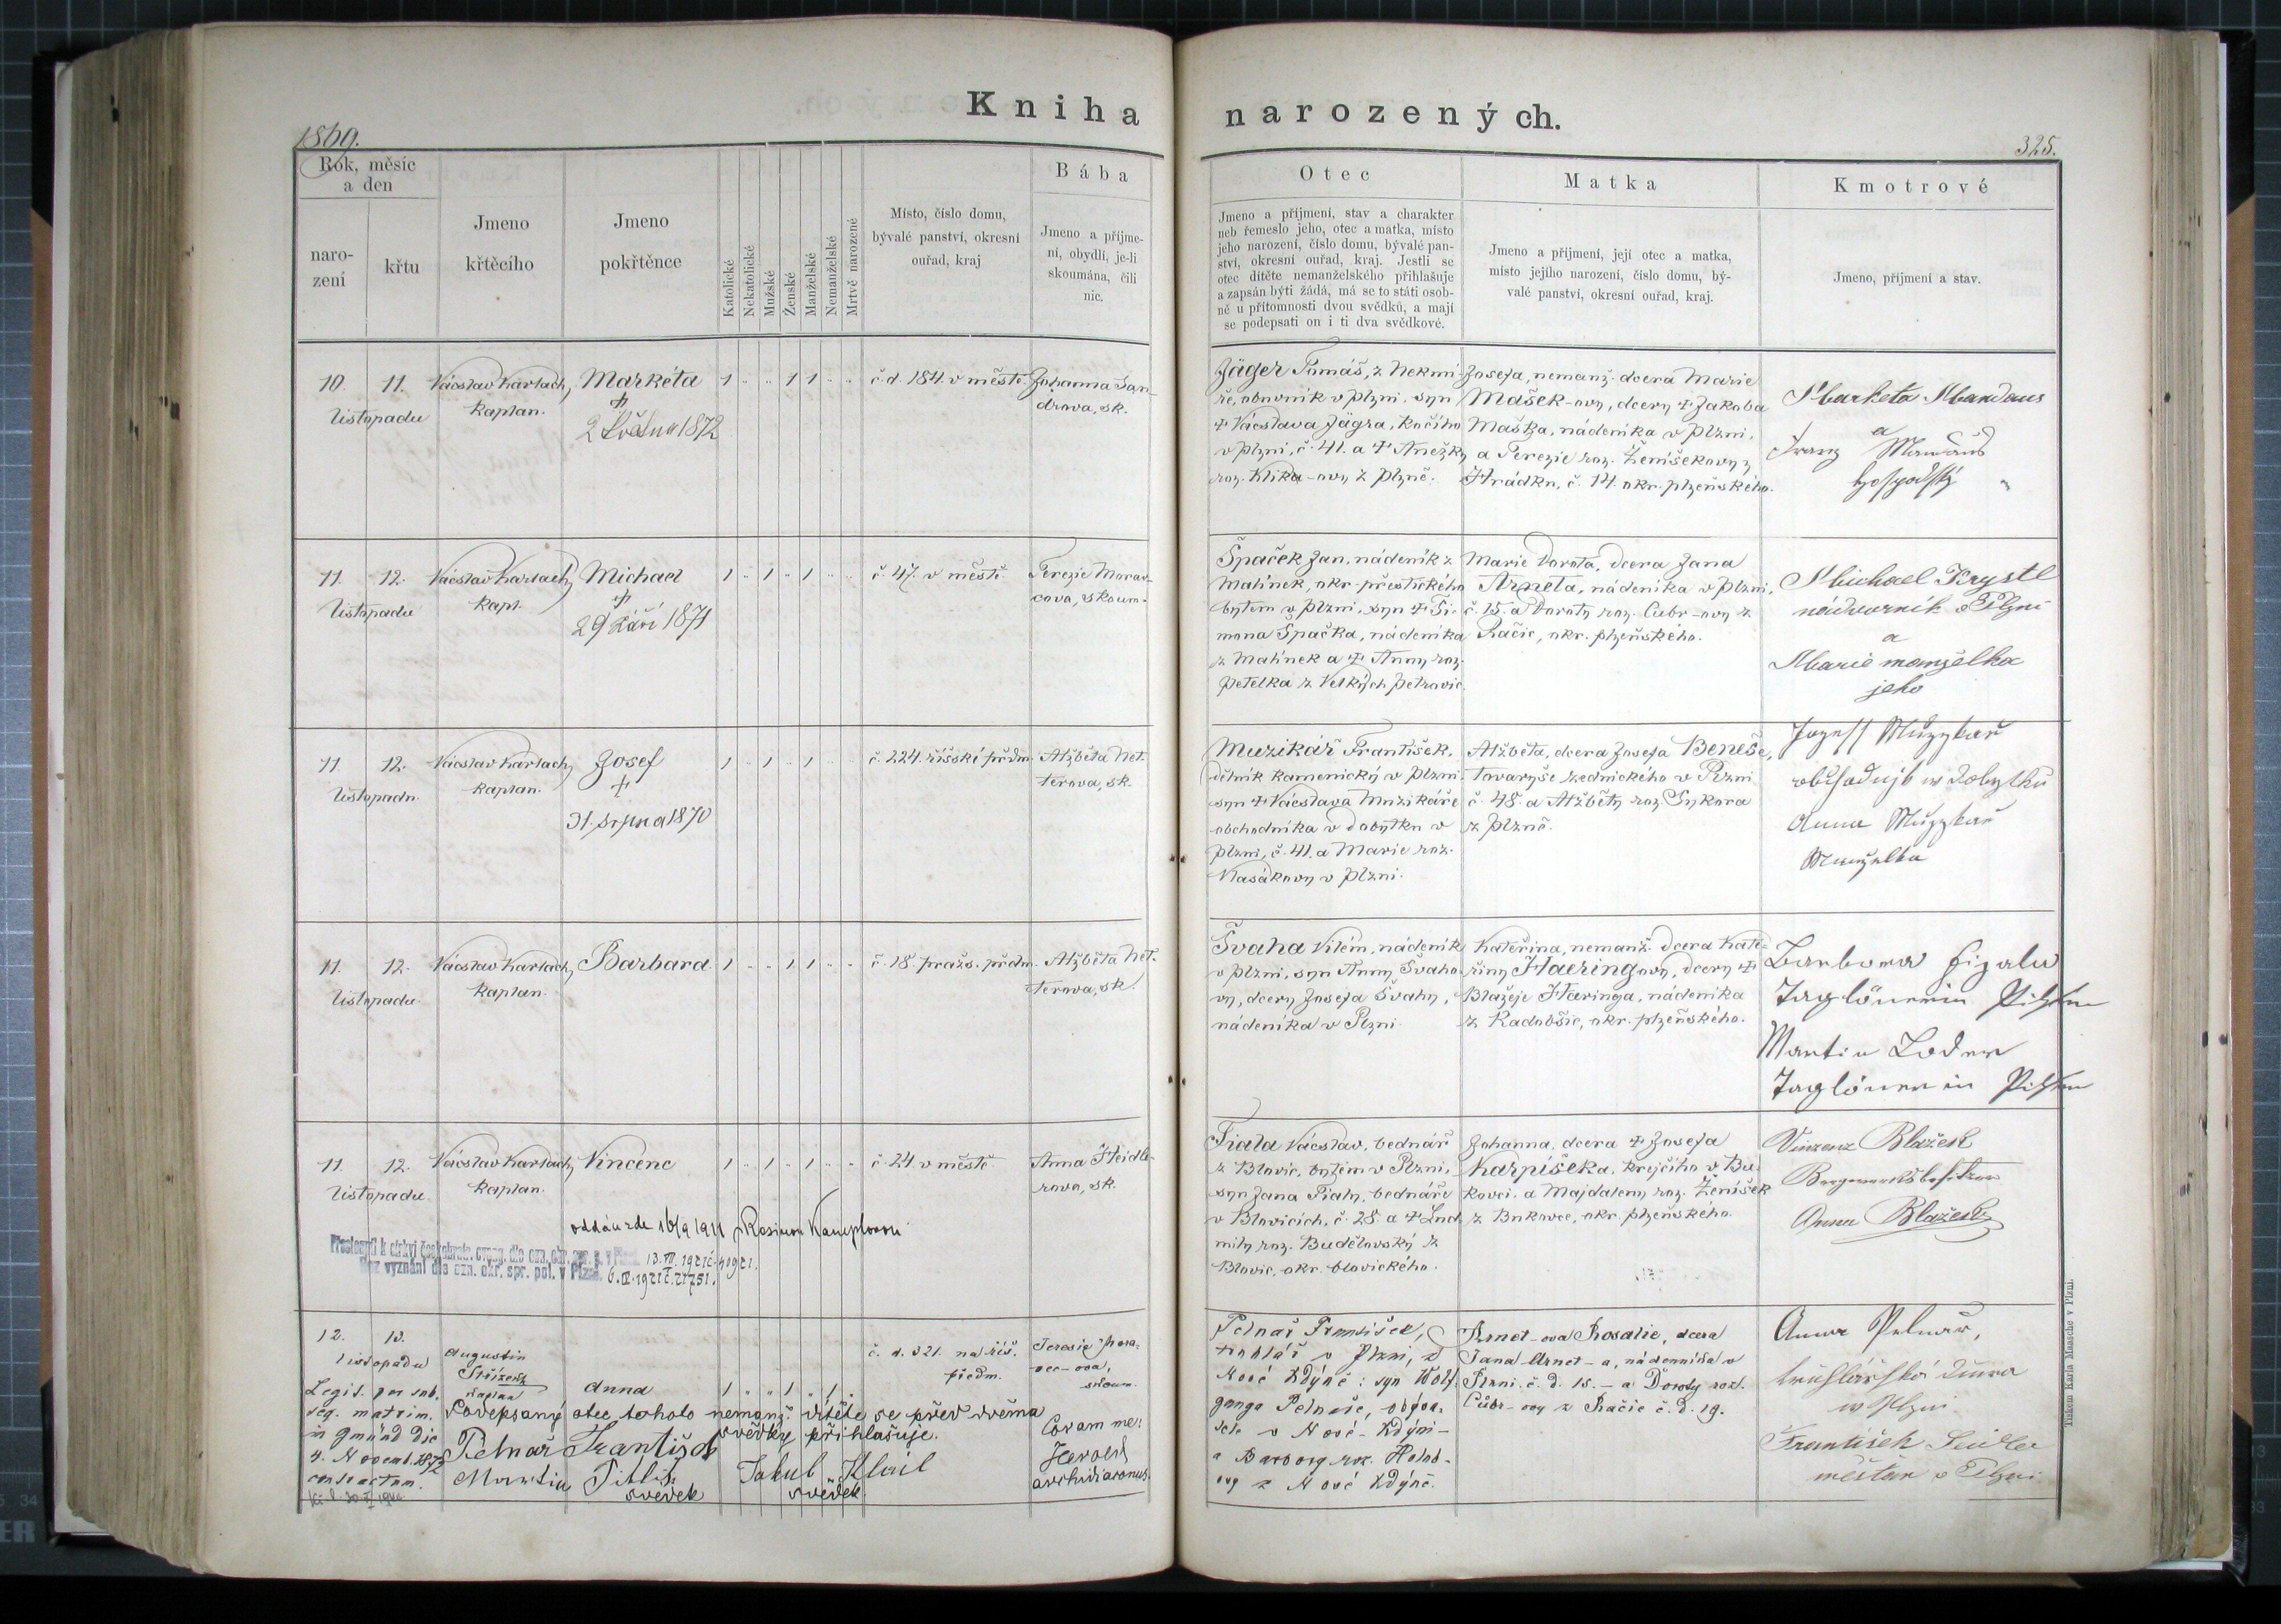 Kniha narozených.
1869.
325.
Rok, měsíc
a den
naro-
zení
křtu
Jmeno
křtěcího
Jmeno
pokřtěnce
Katolické
Nekatolické
Mužské
Ženské
Manželské
Nemanželské
Mrtvě narozené
Místo, číslo domu,
bývalé panství, okresní
ouřad, kraj
Bába
Jmeno a příjme-
ní, obydlí, je-li
skoumána, čili
nic.
Otec
Jmeno a příjmení, stav a charakter
neb řemeslo jeho, otec a matka, místo
jeho narození, číslo domu, bývalé pan-
ství, okresní ouřad, kraj. Jestli se
otec dítěte nemanželského přihlašuje
a zapsán býti žádá, má se to státi osob-
ně u přítomnosti dvou svědků, a mají
se podepsati on i ti dva svědkové.
Matka
Jmeno a příjmení, její otec a matka,
místo jejího narození, číslo domu, bý-
valé panství, okresní ouřad, kraj.
Kmotrové
Jmeno, příjmení a stav.
10. 11.
listopadu
Václav Karlach,
kaplan.
Markéta
†
2 května 1872
1 .. .. 1 1 .. ..
č. d. 184. v městě.
Johanna San-
drova, sk.
Jäger Tomáš, z Nekmí-
ře, obuvník v Plzni, syn
† Václava Jägra, kočího
v Plzni, č. 41. a † Anežky
roz. Klika-ovy z Plzně.
Josefa, nemanž. dcera Marie
Mašek-ovy, dcery † Jakoba
Maška, nádeníka v Plzni,
a Terezie roz. Ženíšekovy z
Hrádku, č. 14. okr. plzeňského.
Marketa Mandaus
a
Franz Mandaus
11. 12.
listopadu
Václav Karlach,
kapl.
Michael
†
29 Září 1871
1 .. 1 .. 1 .. ..
č. 47. v městě
Terezie Morav-
cova, skoum.
Špaček Jan, nádeník z
Malinek, okr. přeštického
bytem v Plzni, syn † Ši-
mona Špačka, nádeníka
z Malinek a † Anny roz.
Petelka z Velkých Petrovic.
Marie Dorota, dcera Jana
Arneta, nádeníka v Plzni,
č. 15. a Doroty roz. Cubr-ovy z
Račic, okr. plzeňského.
Michael Krystl
nádvorník v Plzni
a
Marie manželka
jeho
11. 12.
listopadu.
Václav Karlach,
kaplan.
Josef
†
31. srpna 1870
1 .. 1 .. 1 .. ..
č. 224. říšské předm.
Alžběta Net-
terova, sk.
Muzikář František,
dělník kamenický v Plzni,
syn † Václava Muzikáře
obchodníka v dobytku v
Plzni, č. 41. a Marie roz.
Kasákovy v Plzni.
Alžběta, dcera Josefa Beneše,
tovaryše zednického v Plzni
č. 48. a Alžběty roz. Sykora
z Plzně.
Jozeff Muzykař
Anna Muzykař
Manželka
11. 12.
listopadu.
Václav Karlach,
kaplan.
Barbara.
1 .. .. 1 1 .. ..
č. 18. pražs. předm.
Alžběta Net-
terova, sk.
Švaha Vilém, nádeník
v Plzni, syn Anny Švaho-
vy, dcery Josefa Švahy,
nádeníka v Plzni.
Kateřina, nemanž. dcera Kate-
řiny Haeringovy, dcery †
Blažeje Haeringa, nádeníka
z Radobšic, okr. plzeňského.
Barbora Figalu
Taglönerin Pilsen
Martin Loder
Taglöner in Pilsen
11. 12.
listopadu.
Václav Karlach,
kaplan.
Vincenc
1 .. 1 .. 1 .. ..
č. 24. v městě
Anna Heidle-
rova, sk.
oddán zde 16/9 1911 s
13. VII. 1921 č. 40921.
6. IX. 1921 č. 21751.
Fiala Václav, bednář
z Blovic, bytem v Plzni,
syn Jana Fialy, bednáře
v Blovicích, č. 28. a † Lud-
mily roz. Budělovský z
Blovic, okr. blovického.
Johanna, dcera † Josefa
Karpíška, krejčího v Bu-
kovci, a Majdaleny roz. Ženíšek
z Bukovce, okr. plzeňského.
Vinzenz Blažek
Anna Blažek
12. 13.
listopadu
Legit. per sub.
seq. matrim.
in Gmünd die
4. Novemb. 1872
contractum.
Augustin
Střížek
kaplan
Anna
1 .. .. 1 .. 1 ..
č. d. 321. na říš.
předm.
Teresie Mora-
vec-ova,
skoum.
Podepsaný otec tohoto nemanž. dítěte se před dvěma
svědky přihlašuje.
Pelnař František
Martin
svědek
Jakub Klail
svědek.
Coram me:
Herold
archidiaconus.
Pelnař František,
truhlář v Plzni, z
Nové Kdýně: syn Wolf-
ganga Pelnaře, obyva-
tele v Nové-Kdýni-
a Barbory roz. Holub-
ovy z Nové Kdýně.
Arnet-ova Rosalie, dcera
Jana Arnet-a, nádenníka v
Plzni. č. d. 15. - a Doroty roz.
Cúbr-ovy z Račic č. d. 19.
Anna Pelnař,
truhlářská dcera
w Plzni.
František Seidler
měšťan v Plzni.
Tiskem Karla Maasche v Plzni.